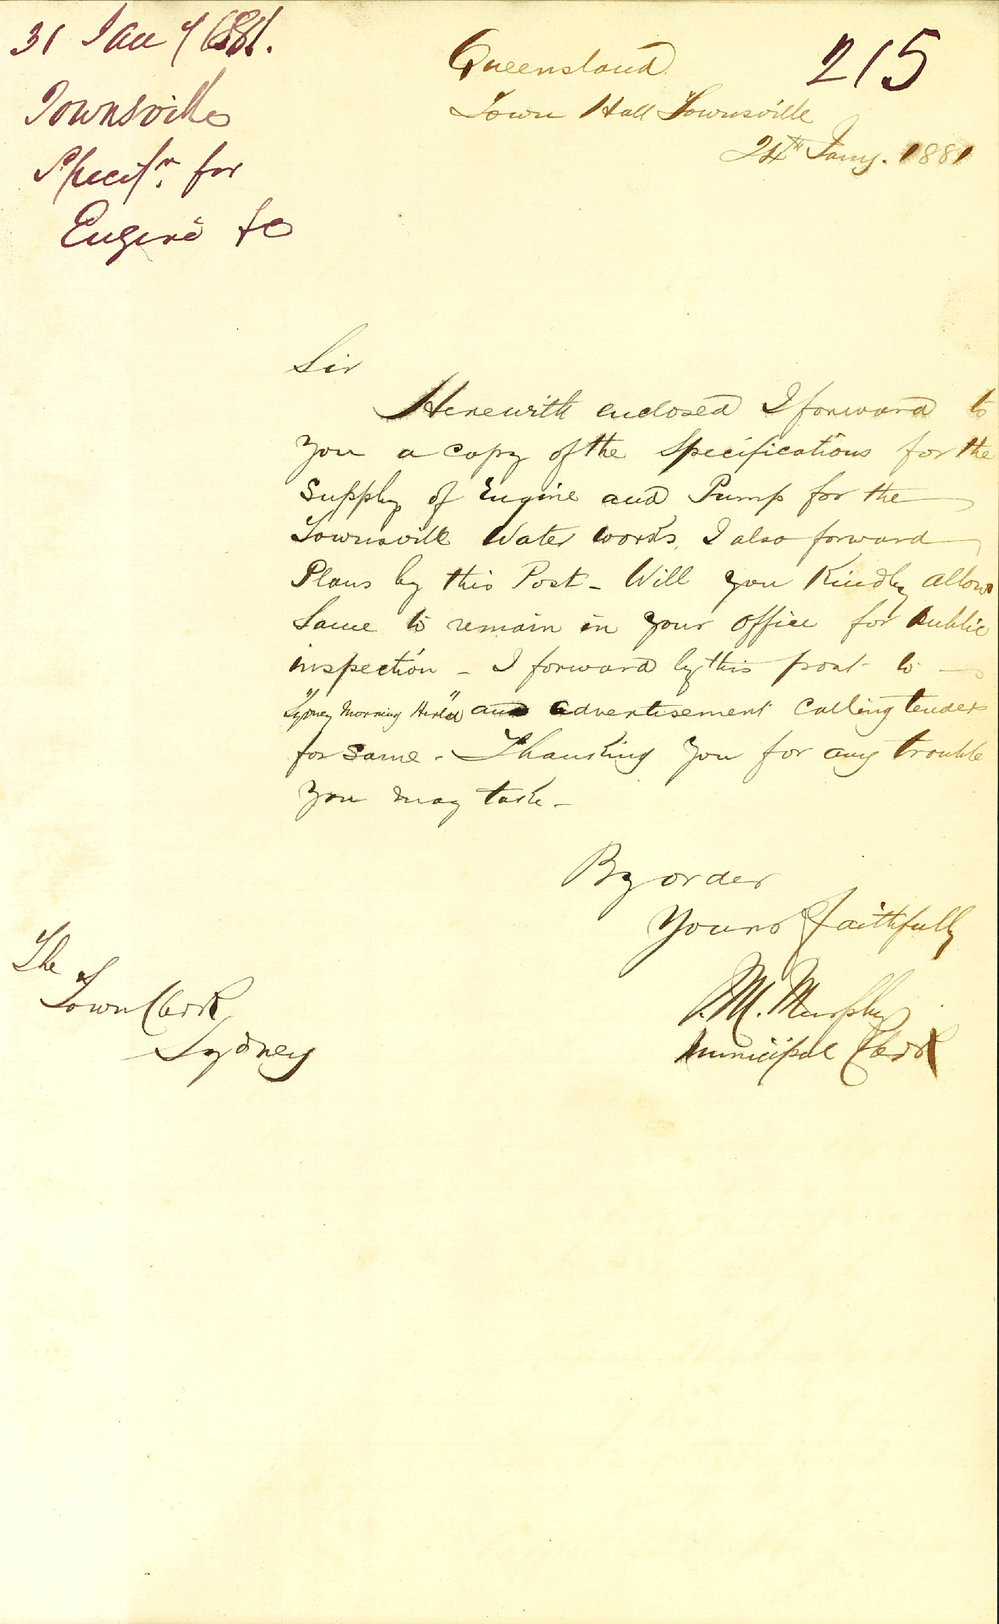 31 Jany 1881.
Townsville
Specifn. for
Engine &c
215
Queensland
Town Hall Townsville
24th Jany. 1881
Sir
Herewith enclosed I forward to
you a copy of the Specifications for the
Supply of Engine and Pump for the
Townsville Water works, I also forward
Plans by this Post - Will you Kindly allow
Same to remain in your office for public
inspection - I forward by this post to
"Sydney Morning Herald" an advertisement Calling tenders
for Same - Thanking you for any trouble
you may take -
By order
Yours faithfully
M. Murphy
Municipal Clerk
The
Town Clerk
Sydney